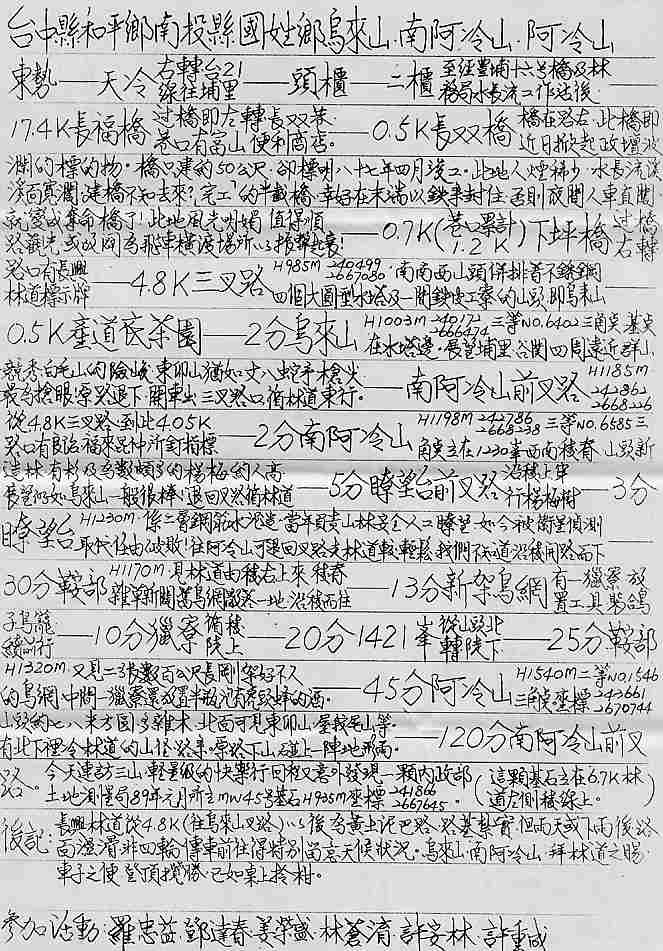 台中縣和平鄉南投縣國姓鄉烏來山.南阿冷山.阿冷山
東勢——天冷 右轉台21線往埔里——頭櫃 二櫃 至經豐埔十六号橋及林務局水長流工作站後
17.4K長福橋 過橋即左轉長双巷 巷口有富山便利商店。——0.5K長双橋 橋在路左.此橋即近日掀起政壇波
瀾的標的物.橋只建的50公尺.卻標明八十七年四月竣工.此地人煙稀少.水長流溪
溪面寬闊.建橋不知去來?完工的半截橋.幸好在末端以鉄封住.否則夜間人車直闖
就變成奪命橋了!此地風光明媚 值得順路觀光.或改開為飛車橫渡場所以振聲——0.7K(巷口累計1.2K)下坪橋 過橋右轉
路口有長興林道標示牌——4.8K三叉路 H985M 240499 2667080 南南西山頭併排著不銹鋼四個大圓型水塔及一間鉄皮工寮的山頭即烏來山
0.5K產道底茶園——2分烏來山 H1003M 240172 2666474 三等NO.6402三角點基点在水塔邊.展望埔里谷關四周遠近群山
競秀白毛山的險峻.東卯山猶如丈八蛇矛槍尖最為搶眼!原路退下 開車出三叉路口循林道東行。——南阿冷山前叉路 H1185M 242862 2668226
從4.8K三叉路到此4.05K 路口有良詒福來昆仲所釘指標——2分南阿冷山 H1198M 242786 2668238 三等NO.6585三角点立在1230峯西南稜脊 山頭新
造林 有於及為數頗多的楊梅約人高.展望好如烏來山一般很棒!退回叉路循林道——5分瞭望台前叉路 沿稜上穿行楊梅樹——3分
瞭望台 H1230M 係二層鋼筋水泥造 當年負責山林安全人工瞭望.如今被衛星偵測取代任由破敗!往阿冷山可退回叉路走林道較輕鬆 我們不知道沿稜開路而下
30分鞍部 H1170M 見林道由稜右上來 稜脊雜草新闢 鳥網散落一地 沿稜而往——13分新架鳥網 有一獵寮放置工具第鴿
子鳥籠續前行——10分獵寮 循稜陡上——20分1421峯 從山頭北轉陡下——25分鞍部
H1320M 又見二張數百公尺長剛架好不久的鳥網.中間一獵寮還放置半瓶泡虎頭蜂的酒.——45分阿冷山 H1540M 二等NO1546 三角點座標 243661 2670744
山頭約七八米方圓多雜木.北面可見東卯山.屋我尾山等.
有北下裡冷林道的山徑路条。原路下山碰上一陣地形雨。——120分南阿冷山前叉
路。今天連訪三山 輕量級的快樂行 回程又意外發現一顆內政部土地測量局89年元月所立MW45号基石H935M座標 241866 2667645.(這顆基石立在6.7K林道左側稜線上。)
後記:長興林道從4.8K(往烏來山叉路)以後為黃土泥巴路.路基紮實.但雨天或下雨後路
面溼滑非四輪傳車前往得特別留意天候狀況.烏來山.南阿冷山 拜林道之賜.
車子之便登頂攬勝.已如桌上拾柑。
參加活動:羅忠益.鄧達春.姜榮盛.林蒼淯.許安林.許重成